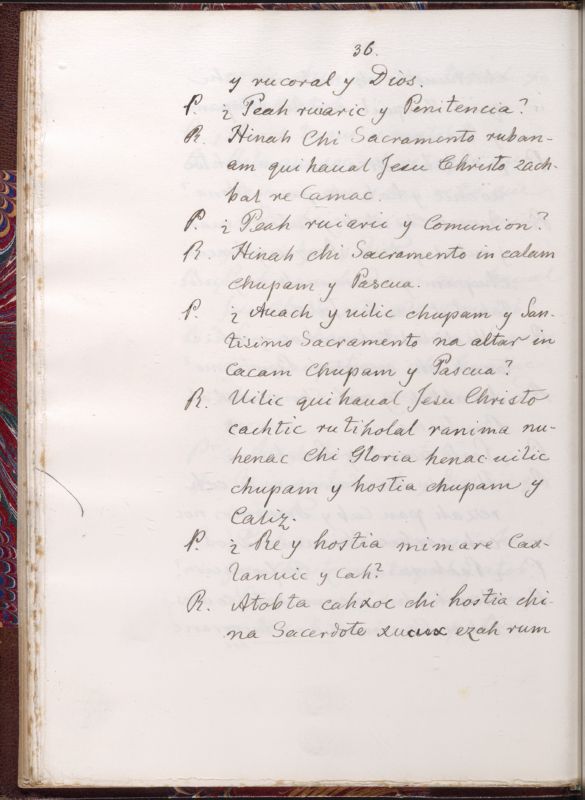 36.
y rucoral y Dios.
P. ¿ Peah ruiaric y Penitencia?
R. Hinah Chi Sacramento ruban-
am qui haual Jesu Christo zach-
bal re Camac.
P. ¿ Peah ruiaric y Comunion?
R Hinah chi Sacramento in calam
chupam y Pascua.
P. ¿ Auach y uilic chupam y San-
tisimo Sacramento na altar in
Cacam Chupam y Pascua?
R. Uilic qui haual Jesu Christo
cachtic ru tiholal ranima nu-
henac Chi Gloria henac uilic
chupam y hostia chupam y
Caliz.
P. ¿ Re y hostia mimare Cax-
lanuic y cah?
R. Atobta cahxoc chi hostia chi-
na Sacerdote ezah rum